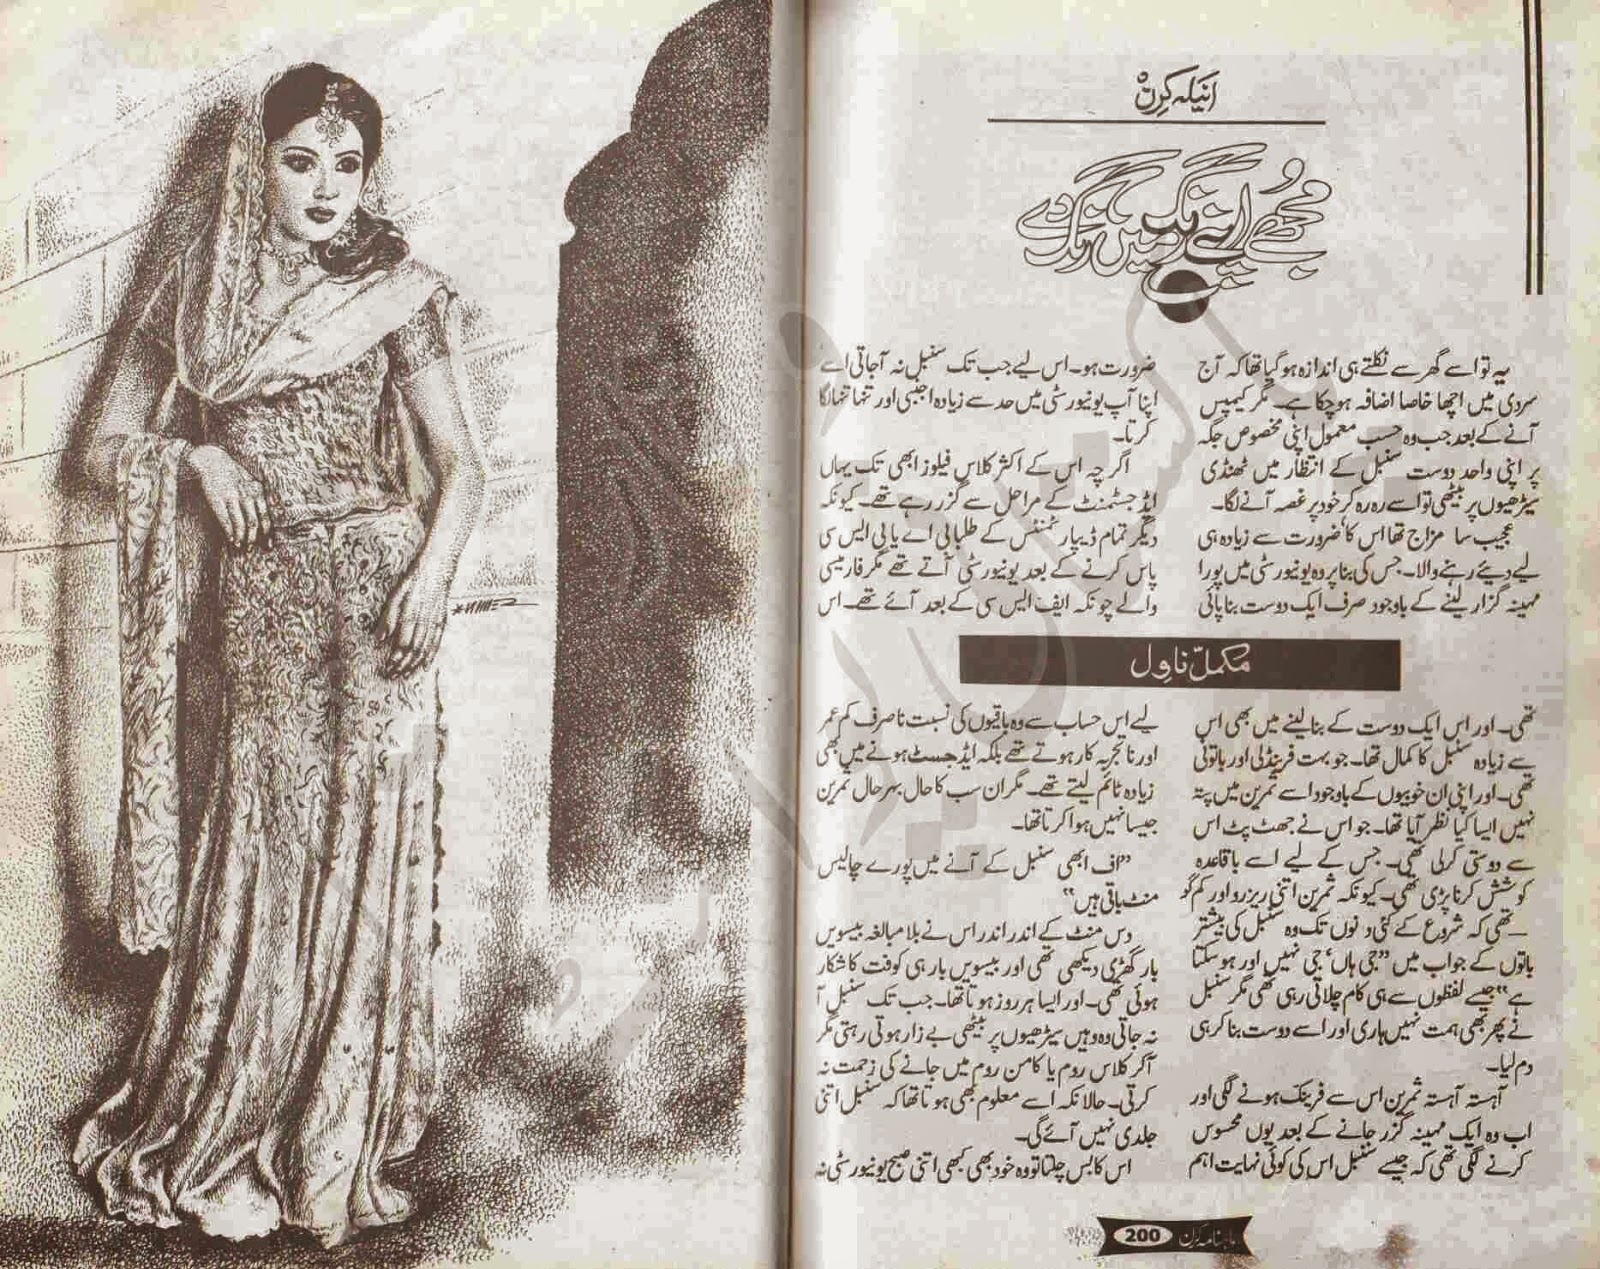 انیلہ کرن
مجھے اپنے رنگ میں رنگ دے
یہ تو اسے گھر سے نکلتے ہی اندازہ ہو گیا تھا کہ آج
سردی میں اچھا خاصا اضافہ ہو چکا ہے۔ مگر کیمپس
آنے کے بعد جب وہ حسب معمول اپنی مخصوص جگہ
پر اپنی واحد دوست سنبل کے انتظار میں ٹھنڈی
سیڑھیوں پر بیٹھی تو اسے رہ رہ کر خود پر غصہ آنے لگا۔
عجیب سا مزاج تھا اس کا ضرورت سے زیادہ ہی
لیے دیئے رہنے والا۔ جس کی بنا پر وہ یونیورسٹی میں پورا
مہینہ گزار لینے کے باوجود صرف ایک دوست بنا پائی
تھی۔ اور اس ایک دوست کے بنا لینے میں بھی اس
سے زیادہ سنبل کا کمال تھا۔ جو بہت فرینڈلی اور باتونی
تھی۔ اور اپنی ان خوبیوں کے باوجود اسے ثمرین میں پتہ
نہیں ایسا کیا نظر آیا تھا۔ جو اس نے جھٹ پٹ اس
سے دوستی کرلی تھی۔ جس کے لیے اسے باقاعدہ
کوشش کرنا پڑی تھی۔ کیونکہ ثمرین اتنی ریزرو اور کم گو
تھی کہ شروع کے کئی دنوں تک وہ سنبل کی بیشتر
باتوں کے جواب میں ”جی ہاں‘ جی نہیں اور ہو سکتا
ہے“ جیسے لفظوں سے ہی کام چلاتی رہی تھی مگر سنبل
نے پھر بھی ہمت نہیں ہاری اور اسے دوست بنا کر ہی
دم لیا۔
آہستہ آہستہ ثمرین اس سے فرینک ہونے لگی اور
اب وہ ایک مہینہ گزر جانے کے بعد یوں محسوس
کرنے لگی تھی کہ جیسے سنبل اس کی کوئی نہایت اہم
ضرورت ہو۔ اس لیے جب تک سنبل نہ آجاتی اسے
اپنا آپ یونیورسٹی میں حد سے زیادہ اجنبی اور تنہا تنہا لگا
کرتا۔
اگرچہ اس کے اکثر کلاس فیلوز ابھی تک یہاں
ایڈجسٹمنٹ کے مراحل سے گزر رہے تھے۔ کیونکہ
دیگر تمام ڈیپارٹمنٹس کے طلبا بی اے یا بی ایس سی
پاس کرنے کے بعد یونیورسٹی آتے تھے مگر فارمیسی
والے چونکہ ایف ایس سی کے بعد آئے تھے۔ اس
لیے اس حساب سے وہ باقیوں کی نسبت نا صرف کم عمر
اور ناتجربہ کار ہوتے تھے بلکہ ایڈجسٹ ہونے میں بھی
زیادہ ٹائم لیتے تھے۔ مگر ان سب کا حال بہرحال ثمرین
جیسا نہیں ہوا کرتا تھا۔
”اف ابھی سنبل کے آنے میں پورے چالیس
منٹ باقی ہیں“
دس منٹ کے اندر اندر اس نے بلا مبالغہ بیسویں
بار گھڑی دیکھی تھی اور بیسویں بار ہی کوفت کا شکار
ہوئی تھی۔ اور ایسا ہر روز ہوتا تھا۔ جب تک سنبل آ
نہ جاتی وہ وہیں سیڑھیوں پر بیٹھی بے زار ہوتی رہتی مگر
اگر کلاس روم یا کامن روم میں جانے کی زحمت نہ
کرتی۔ حالانکہ اسے معلوم بھی ہوتا تھا کہ سنبل اتنی
جلدی نہیں آئے گی۔
اس کا بس چلتا تو وہ خود بھی کبھی اتنی صبح یونیورسٹی نہ
مکمل ناول
ماہنامہ کرن 200